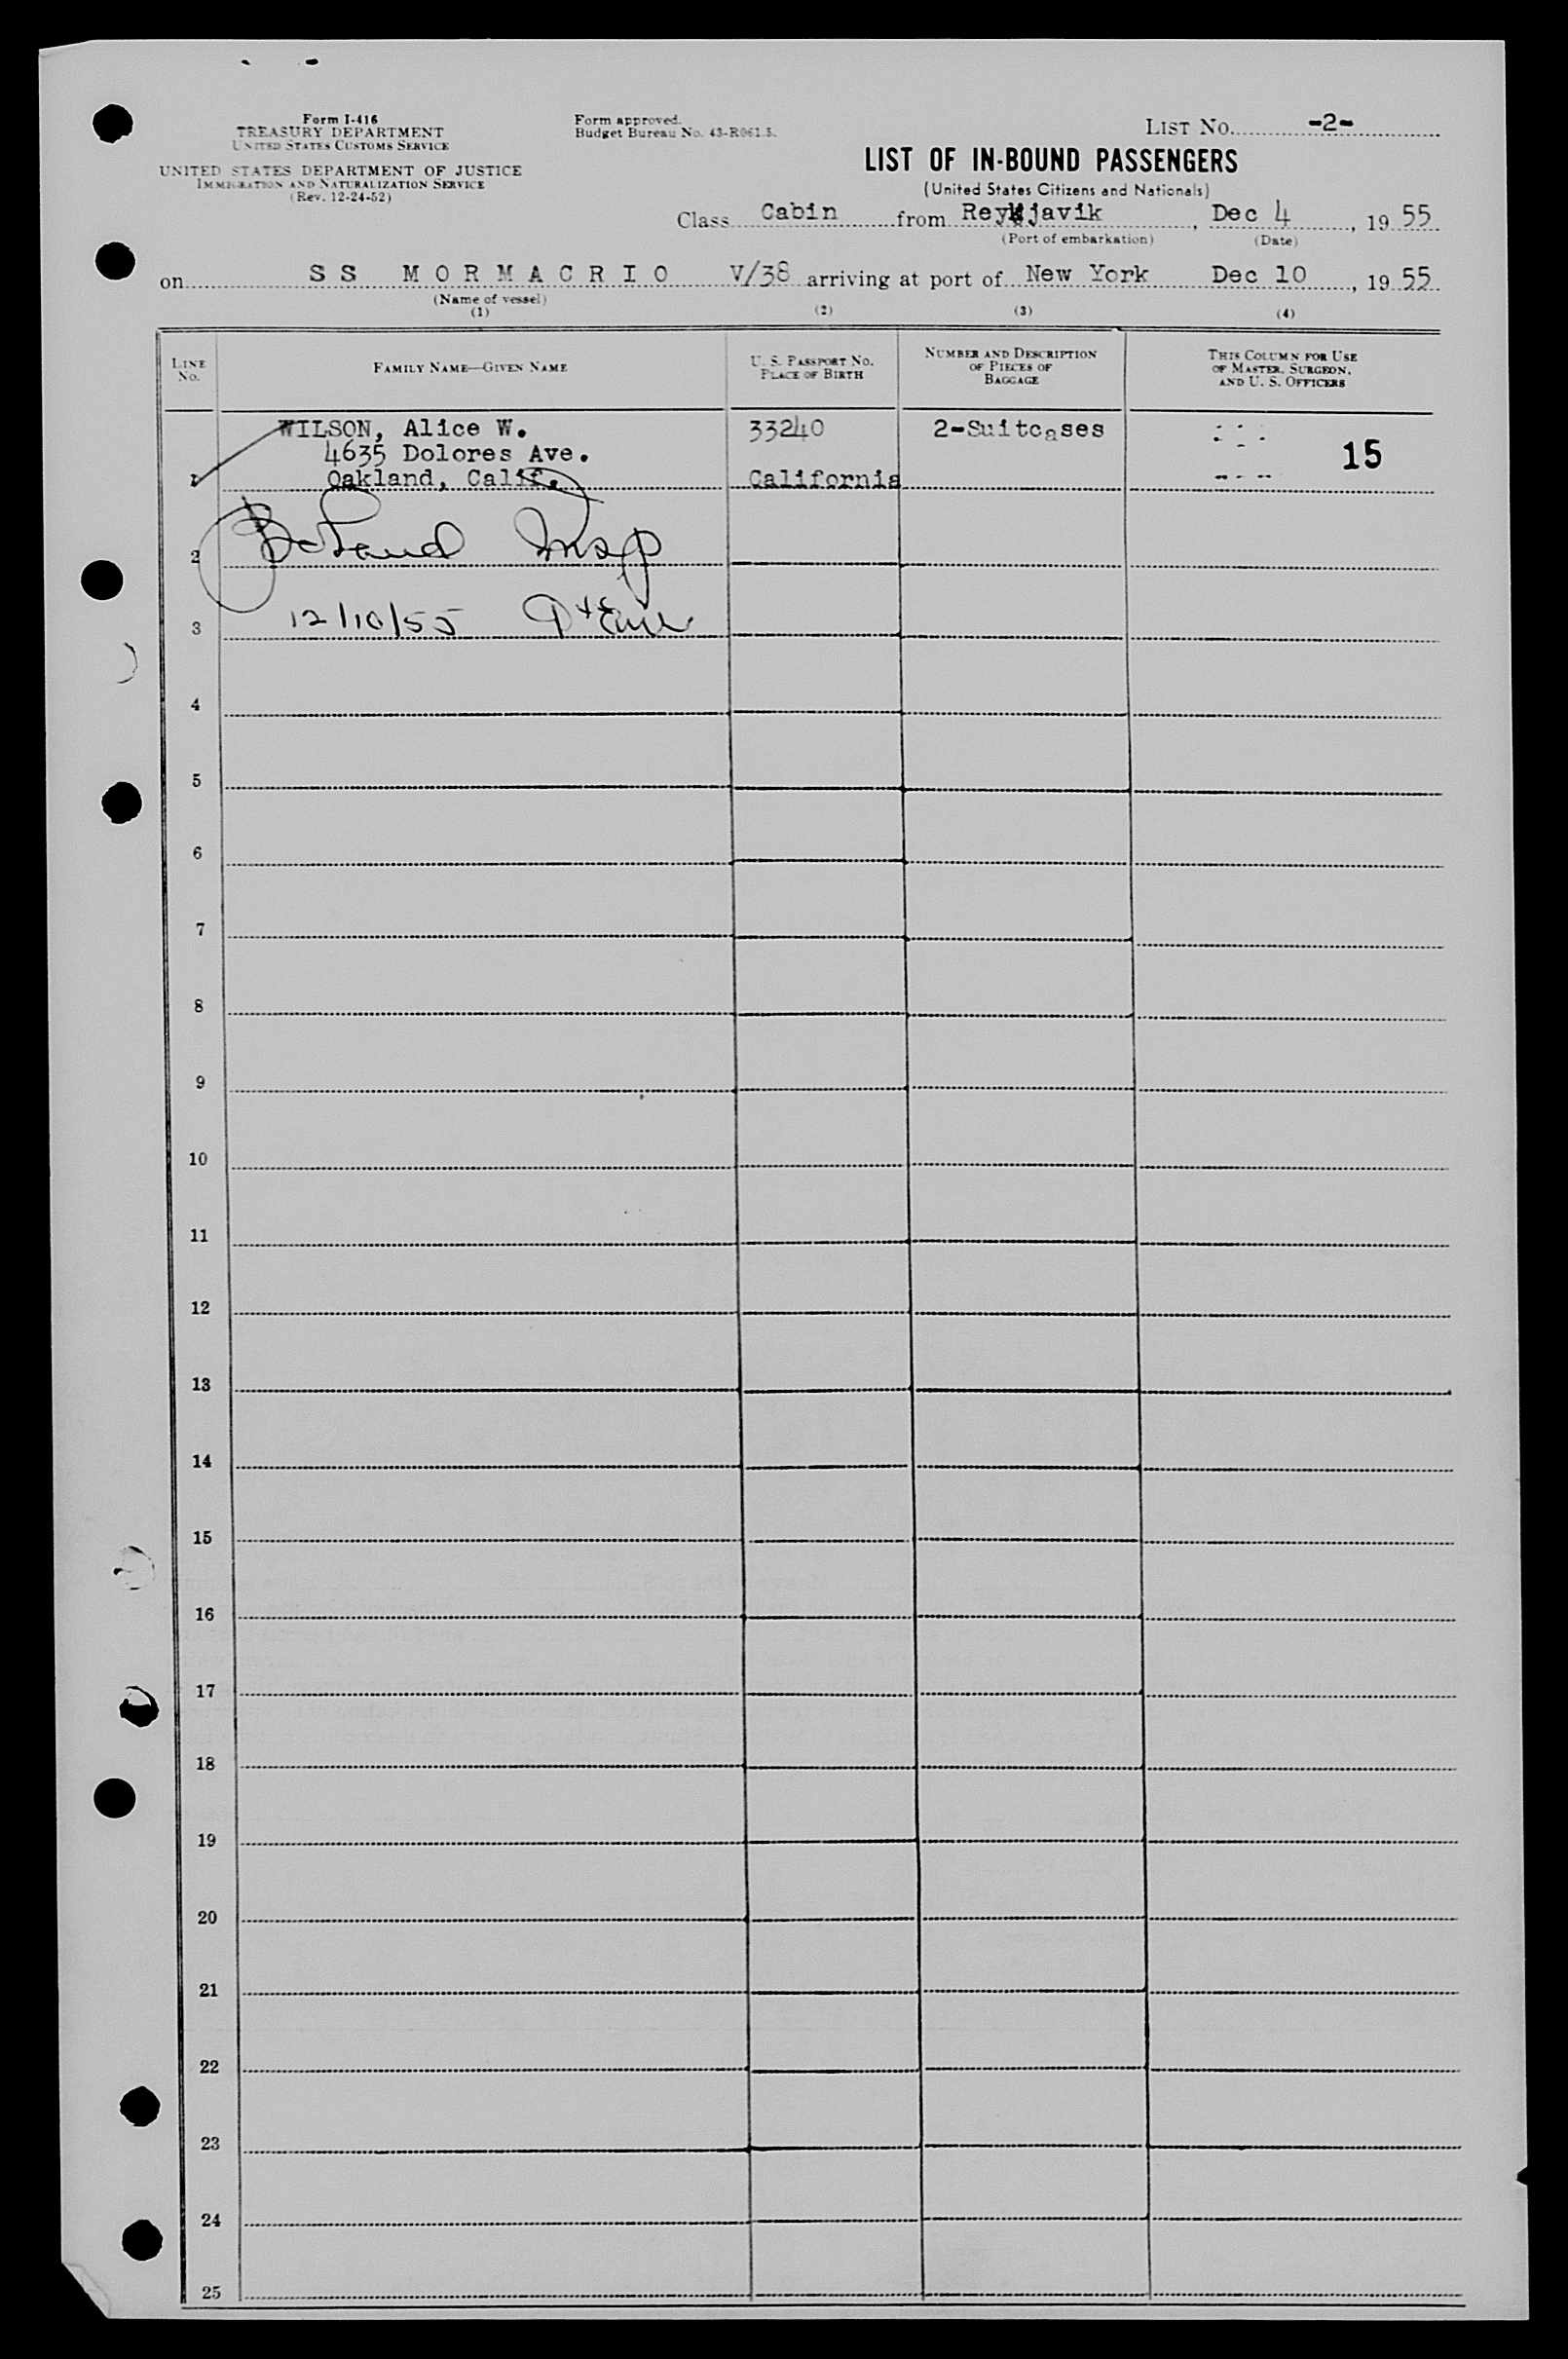 Form I-416
TREASURY DEPARTMENT
UNITED STATES CUSTOMS SERVICE
UNITED STATES DEPARTMENT OF JUSTICE
IMMIGRATION AND NATURALIZATION SERVICE
(Rev. 12-24-52)
Form approved.
Budget Bureau No. 43-R061.5.
LIST No. -2-
LIST OF IN-BOUND PASSENGERS
(United States Citizens and Nationals)
Class Cabin from Reykjavik, Dec 4, 19 55
(Port of embarkation) (Date)
on SS MORMACRIO V/38 arriving at port of New York Dec 10, 19 55
(Name of vessel)
(1) (2) (3) (4)
LINE No. FAMILY NAME—GIVEN NAME U. S. PASSPORT No. PLACE OF BIRTH NUMBER AND DESCRIPTION OF PIECES OF BAGGAGE THIS COLUMN FOR USE OF MASTER, SURGEON, AND U. S. OFFICERS
WILSON, Alice W. 33240 2-Suitcases
4635 Dolores Ave. 15
1 Oakland, Calif. California
2 Insp
3 12/10/55
4
5
6
7
8
9
10
11
12
13
14
15
16
17
18
19
20
21
22
23
24
25